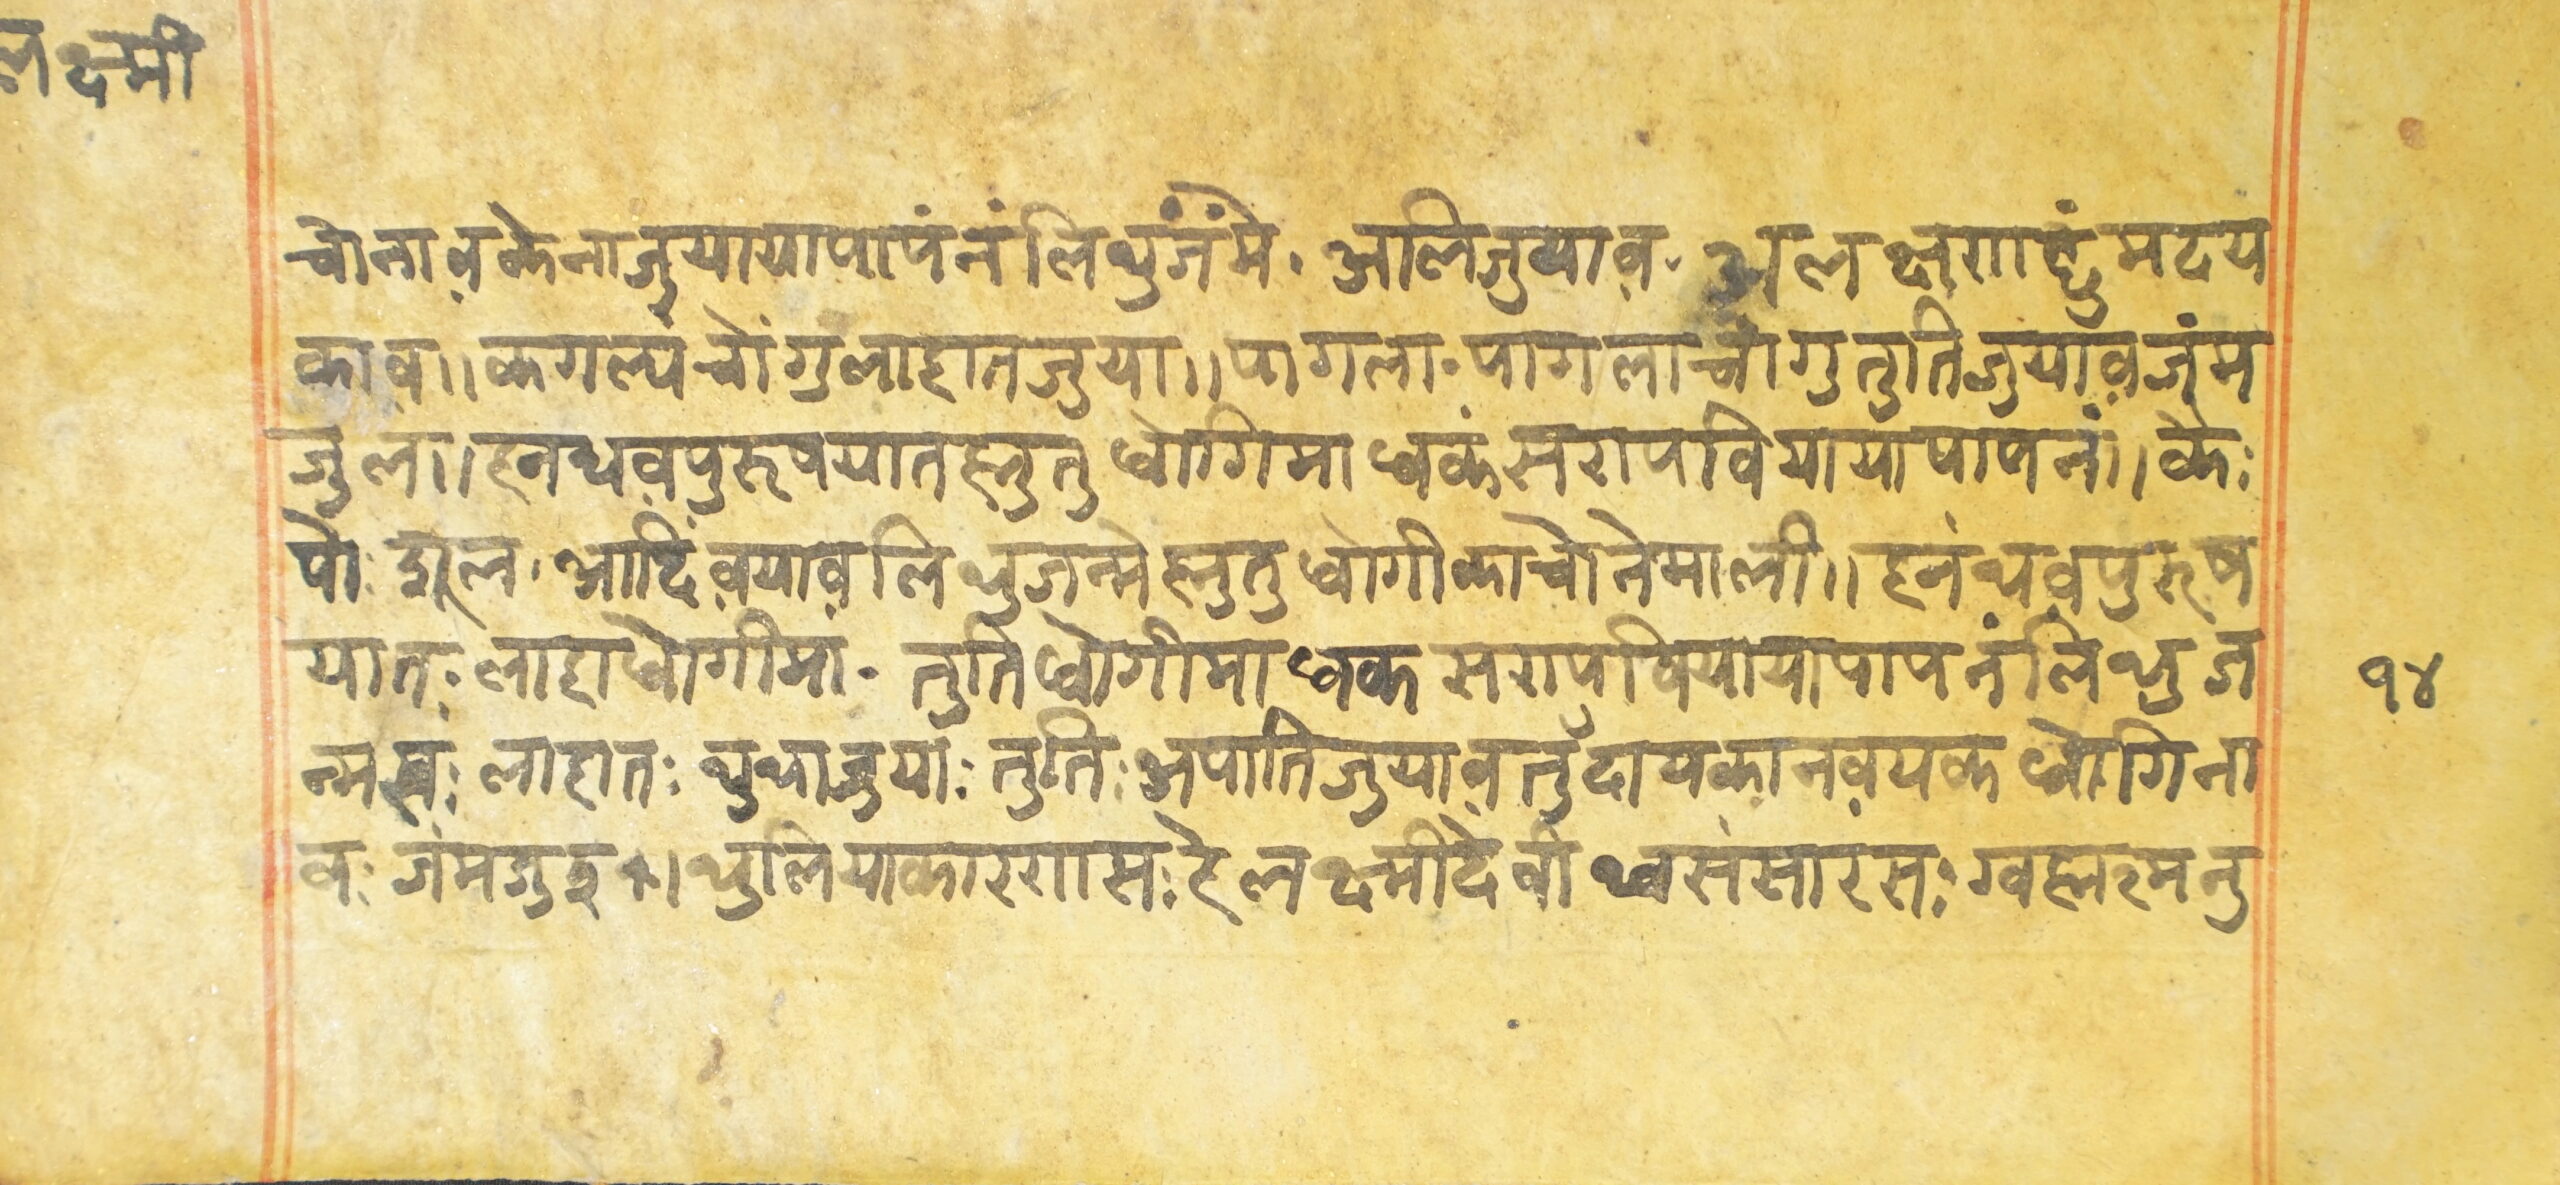 लक्ष्मी
चोनाव़ केनाजुयायापापंनं लिथुजंमे · अलिजुयाव़ · अलक्षगाह्नुंमदय
काव़॥ कगल्पंचोंगुलाहातजुया॥ पागला · पागलाचोंगुतुतिजुयाव़जंम
जुल॥ हनथव़पुरूषयातह्नुतुध्वागिमाध्वकंसरापवियायापापनं॥ केः
पोः शूल · आदिंव़याव़लिथुजन्मेह्नुतुध्वागीकाचोनेमाली॥ हनंथव़पुरूष
यातः लाहाध्वोगीमा · तुतिध्वोगीमाध्वकसरापवियायापापनंलिथुज
न्मसः लाहातः थुथाजुयाः तुतिः अपातिजुयाव़तुँदायकानव़यकध्वोगिना
वः जंमजुइ॥ थुलियाकारगासः हेलक्ष्मीदेवीथ्वसंसारसः ग्वह्मरमनु
१४